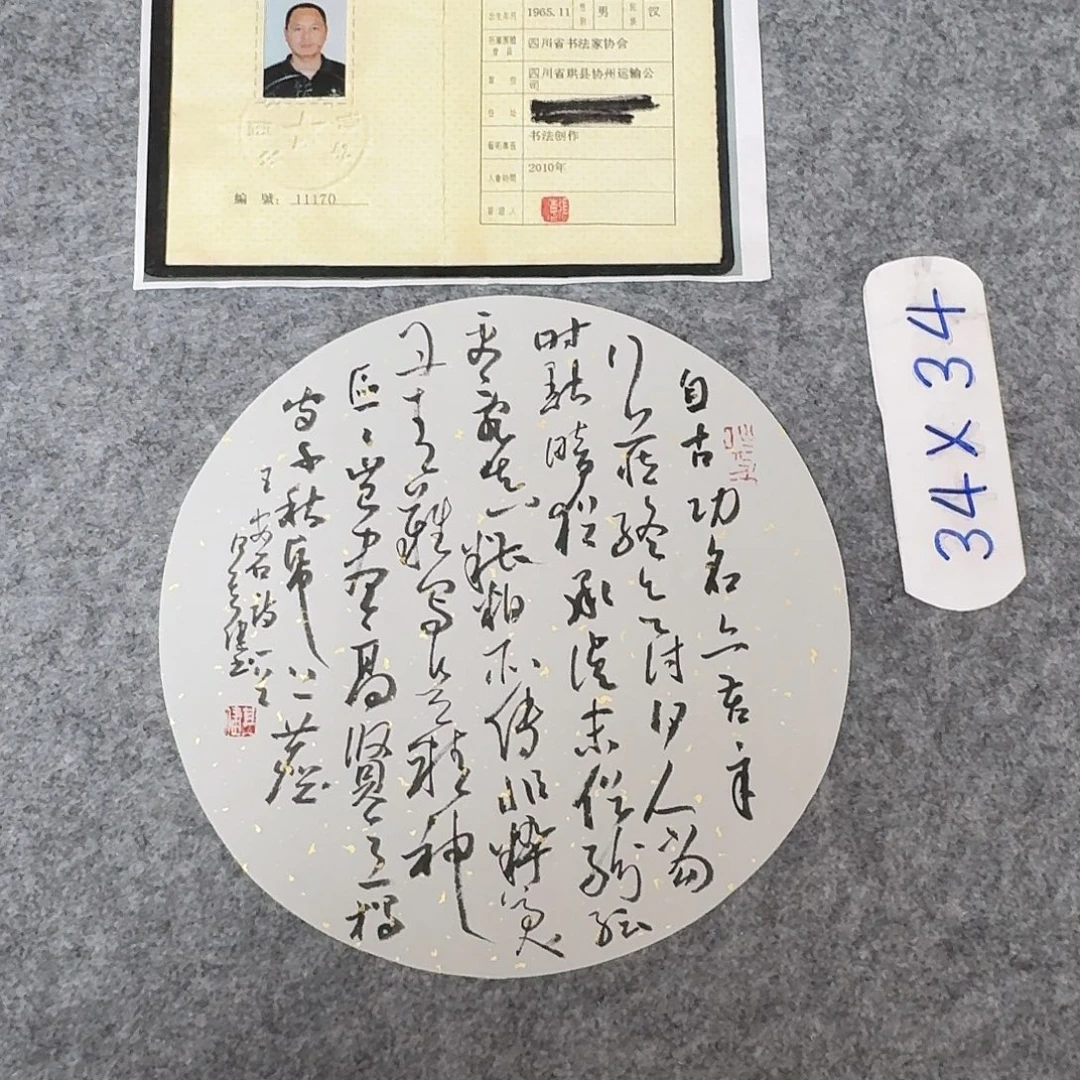 出生年月 1965.11 性别 男 民族 汉
四川省书法家协会
四川省珙县协州运输公
司
住 址
书法创作
入會時間 2010年
編 號: 11170
34×34
自古功名亦苦辛
行藏终欲付何人当
时黮暗犹承误末俗纷纭
更乱真糟粕所传非粹美
丹青难写是精神
区区岂尽高贤意独
守千秋纸上尘
王安石诗一首